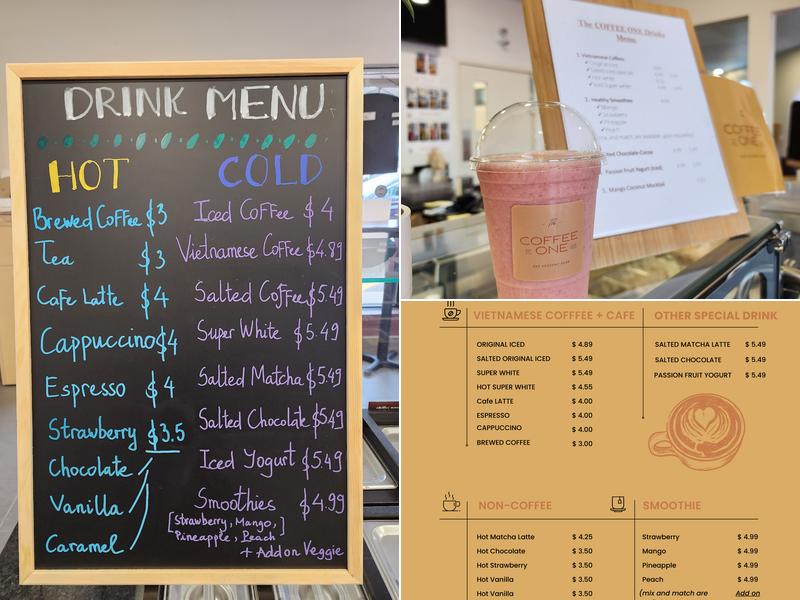 DRINK MENU
HOT
Brewed Coffee $3
Tea $3
Cafe Latte $4
Cappuccino $4
Espresso $4
Strawberry $3.5
Chocolate
Vanilla
Caramel
COLD
Iced Coffee $4
Vietnamese Coffee $4.89
Salted Coffee $5.49
Super White $5.49
Salted Matcha $5.49
Salted Chocolate $5.49
Iced Yogurt $5.49
Smoothies $4.99
[Strawberry, Mango,
Pineapple, Peach]
+ Add on Veggie
The COFFEE ONE Drinks
Menu
1. Vietnamese Coffee
2. Healthy Smoothies
Mango
Strawberry
Pineapple
Peach
Passion Fruit Yogurt (Iced)
Mango Coconut Mocktail
The
COFFEE
ONE
COFFEE
ONE
VIETNAMESE COFFFEE + CAFE
ORIGINAL ICED $ 4.89
SALTED ORIGINAL ICED $ 5.49
SUPER WHITE $ 5.49
HOT SUPER WHITE $ 4.55
Cafe LATTE $ 4.00
ESPRESSO $ 4.00
CAPPUCCINO $ 4.00
BREWED COFFEE $ 3.00
OTHER SPECIAL DRINK
SALTED MATCHA LATTE $ 5.49
SALTED CHOCOLATE $ 5.49
PASSION FRUIT YOGURT $ 5.49
NON-COFFEE
Hot Matcha Latte $ 4.25
Hot Chocolate $ 3.50
Hot Strawberry $ 3.50
Hot Vanilla $ 3.50
Hot Vanilla $ 3.50
SMOOTHIE
Strawberry $ 4.99
Mango $ 4.99
Pineapple $ 4.99
Peach $ 4.99
(mix and match are Add on